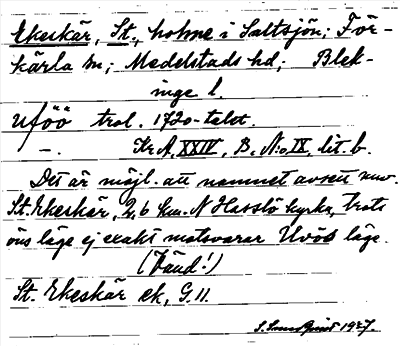 Ekeskär, St., holme i Saltsjön; För-
kärla sn; Medelstads hd; Blek-
inge l.
Uföö trol. 1720-talet.
—. Kr. A. XXIV, B, N:o IX, lit. b.
Det är möjl. att namnet avsett nuv.
St. Ekeskär, 2,6 km. N Hasslö kyrka, trots
öns läge ej exakt motsvarar Uvös läge.
(Vänd!)
St. Ekeskär ek, G.11.
S. 1927.